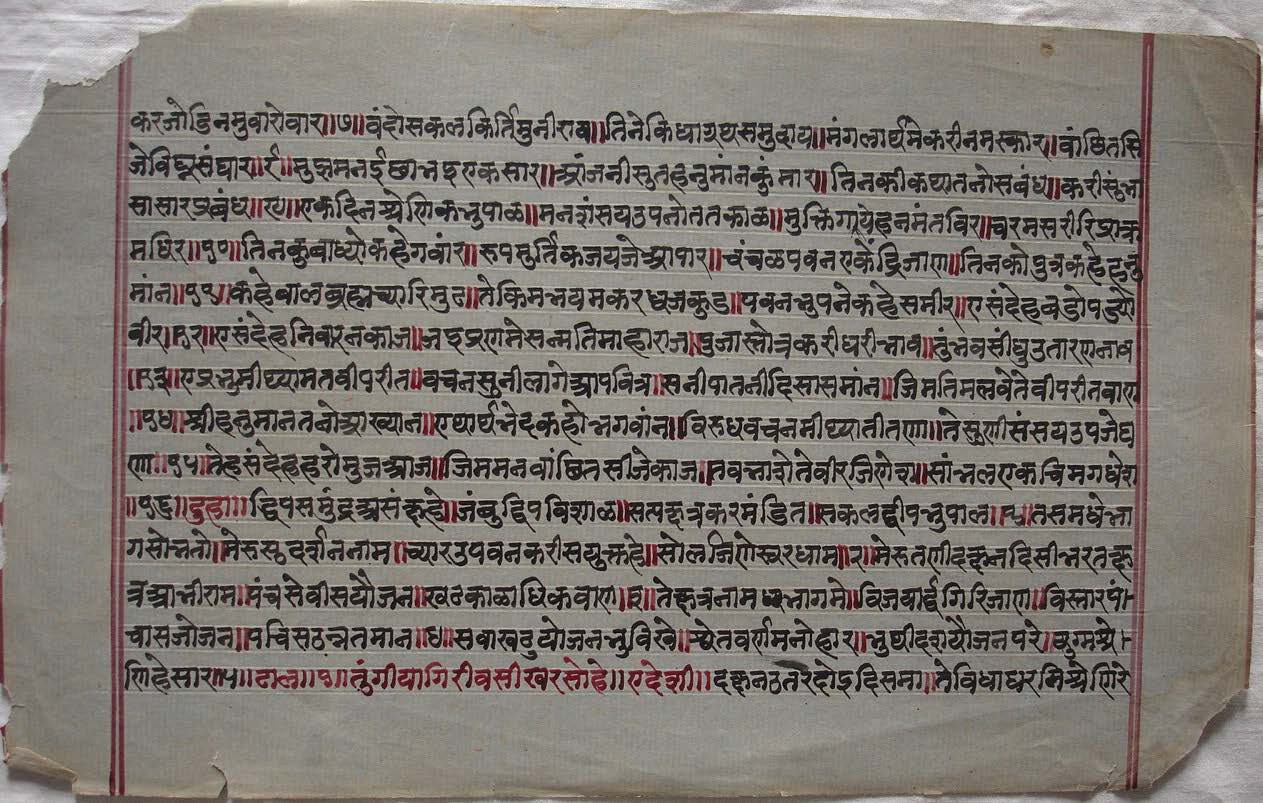 करजोडिनमुवारोवार॥७॥वंदोसकलकिर्तिमुनीराय॥तिनेकिधाग्रथसमुदाय॥मंगलार्थमेकरीनमस्कार॥वांछितसि
जेविघ्नसंघार॥८॥मुझमनईछाभइएकसार॥आंजनीसुतहनुमांनकुंमार॥तिनकीकथातनोसबंध॥करीसुंभा
सासारप्रबंध॥९॥एकदिनश्रेणिकभुपाळ॥मनशंसयउपनोततकाळ॥मुक्तिगायेहनमंतविर॥चरमसरीरिप्राक्र
मधिर॥१०॥तिनकुवाध्योकहेगवांर॥रुपसुर्तिकजयजेआपार॥चंचळपवनएकेंद्रिजाण॥तिनकोपुत्रकहेहनु
मांन॥११॥कहेबालब्रह्मच्यारिमुढ॥तेकिमभयमकरधजकुड॥पवनभुपनेकहेसमीर॥एसंदेहबडोपड्यो
वीर॥१२॥एसंदेहनिवारनकाज॥जइप्रणमेसन्मतिमाहाराज॥पुजास्तोत्रकरीधरीभाव॥तुंभवसींधुउतारणनाव
॥१३॥एप्रभुमीथ्यामतवीपरीत॥वचनसुनीलागेआपवित्र॥सनीपातनीदिसासमांन॥जिमतिमलवेतेवीपरीतवाण
॥१४॥श्रीहनुमानतनोआख्यान॥एथार्थभेदकहोभगवांन॥विरुधवचनमीथ्यातीतणा॥तेसुणीसंसयउपजेघ
णा॥१५॥तेहसंदेहहरोमुजआज॥जिममनवांछितसीजेकाज॥तवभाखेतेवीरजिणेश॥सांभलएकचिमगधेश
॥१६॥दुहा॥द्विपसमुंद्रअसंक्षहे॥जंबुद्विपविशाळ॥सत्पक्षत्रकरमंडित॥सकलद्वीपभुपाल॥१॥तसमधेभा
गसोभतो॥मेरुसुदर्शननाम॥च्यारउपवनकरीसयुक्तहे॥सोलजिणेस्वरधाम॥२॥मेरुतणीदक्षनदिसी॥भरतक्ष
त्रआभीराम॥पंचसेवीसयौजन॥खटकाळाधिकवाण॥३॥तेक्षत्रनाममध्यभागमे॥विजयार्द्धगिरिजाण॥विस्तारपं
चासजोजन॥पचिसउन्नतमान॥४॥सवाखटुयोजनभुविखे॥श्वेतवर्णमनोहार॥भुथीदशयौजनपरे॥युग्मश्रे
णिहेसार॥५॥ढाल॥१॥तुंगीयागिरीवसीखरसोहे॥एदेशी॥दक्षनउतरेदोइदिसमा॥तेविधाधरभिश्रेणिरे